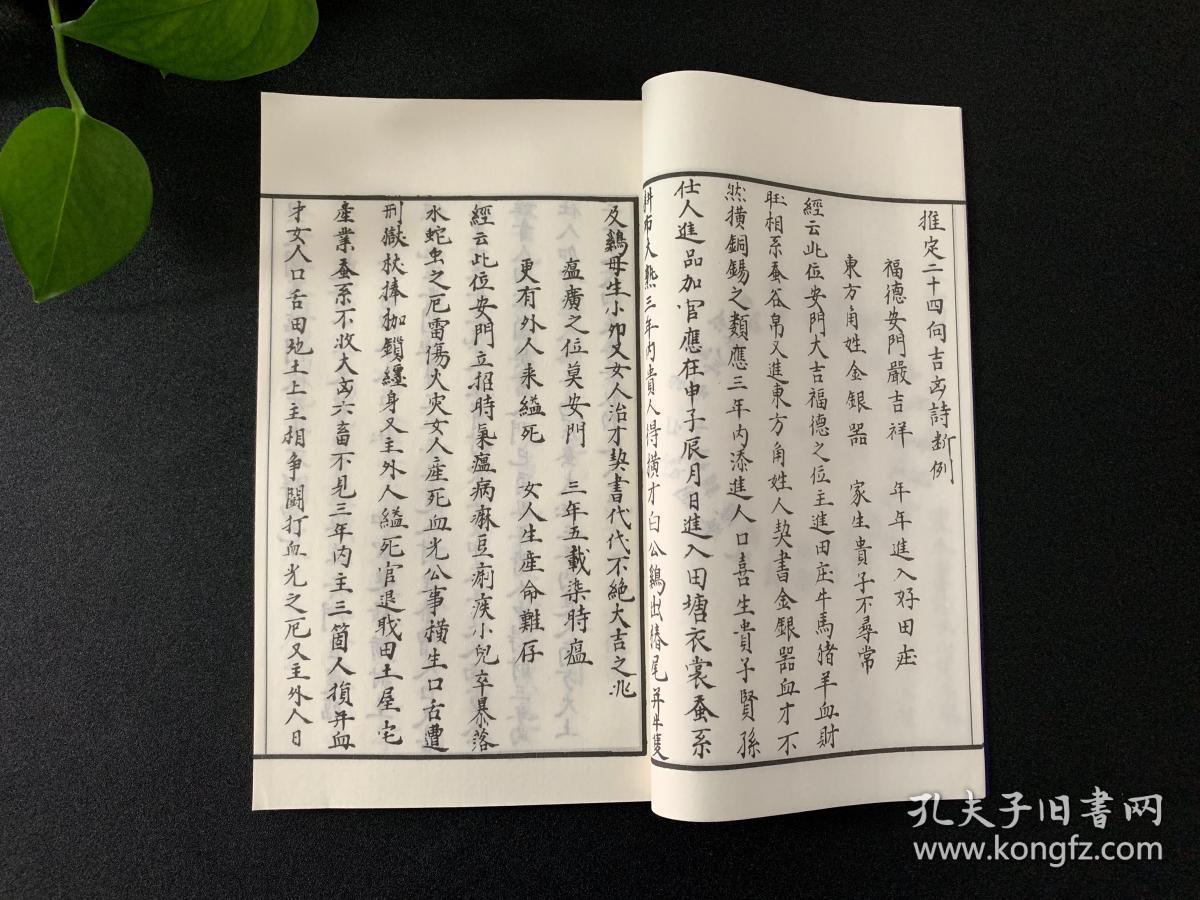 推定二十四向吉凶詩断例
福德安門嚴吉祥 年年進入好田庄
東方角姓金銀器 家生貴子不尋常
經云此位安門大吉福德之位主進田庄牛馬猪羊血財
旺相系蚕谷帛又進東方角姓人契書金銀器血才不
然横銅錫之類應三年内添進人口喜生貴子賢孫
仕人進品加官應在申子辰月日進入田塘衣裳蚕系
大熟三年内貴人得横才白公鷄出椿尾并牛隻
及鷄母生小卵又女人治才契書代代不絶大吉之兆
瘟癀之位莫安門 三年五載染時瘟
更有外人来縊死 女人生産命難存
經云此位安門立招時氣瘟病麻豆痢疾小兒卒暴落
水蛇虫之厄雷傷火灾女人産死血光公事横生口舌遭
刑獄杖捧枷鎖纏身又主外人縊死官退戝田土屋宅
産業蚕系不收大凶六畜不見三年内主三箇人損并血
才女人口舌田地土上主相争鬪打血光之厄又主外人日
孔夫子旧书网
www.kongfz.com